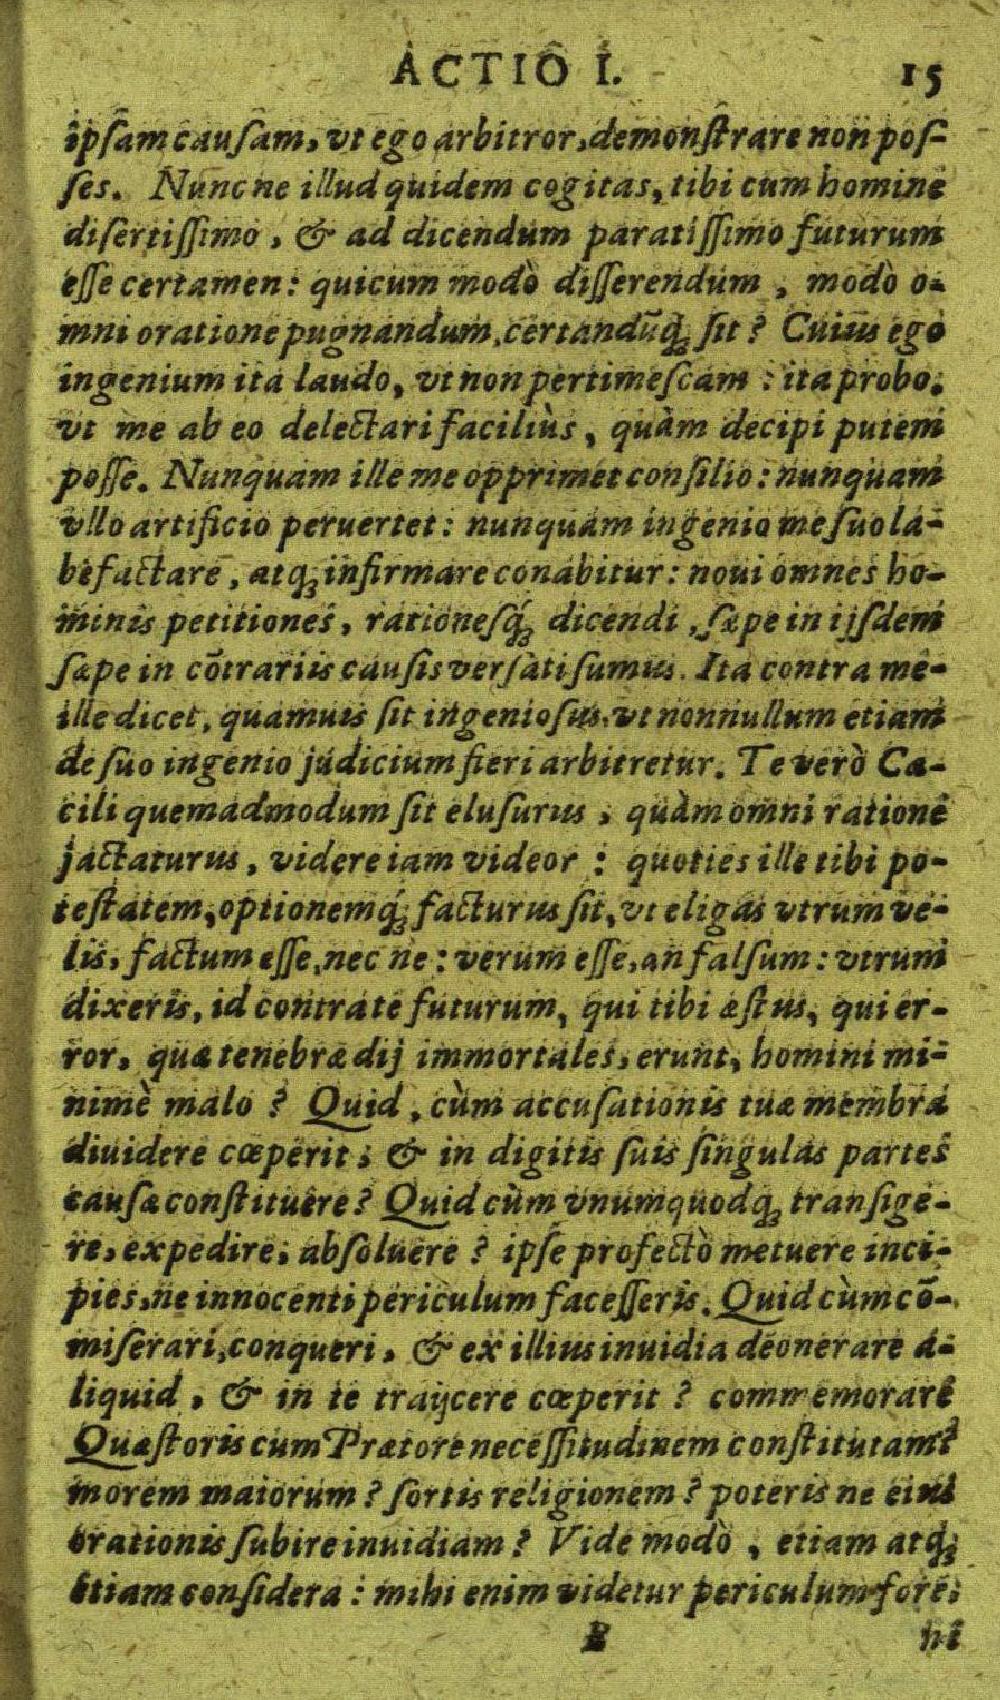 ACTIO I. 15
ipſam cauſam, vt ego arbitror, demonſtrare non poſ-
ſes. Nunc ne illud quidem cogitas, tibi cum homine
diſertiſſimo, & ad dicendum paratiſſimo futurum
eſſe certamen: quicum modò diſſerendum, modò o-
mni oratione pugnandum, certandūq́; ſit? Cuius ego
ingenium ita laudo, vt non pertimeſcam: ita probo,
vt me ab eo delectari faciliùs, quàm decipi putem
poſſe. Nunquam ille me opprimet conſilio: nunquam
vllo artificio peruertet: nunquam ingenio me ſuo la-
befactare, atq; infirmare conabitur: noui omnes ho-
minis petitiones, rationeſq́; dicendi, ſæpe in ijſdem
ſæpe in cōtrariis cauſis verſati ſumus. Ita contra me-
ille dicet, quamuis ſit ingenioſus, vt nonnullum etiam
de ſuo ingenio judicium fieri arbitretur. Te verò Cæ-
cili quemadmodum ſit eluſurus, quàm omni ratione
jactaturus, videre iam videor: quoties ille tibi po-
teſtatem, optionemq́; facturus ſit, vt eligas vtrum ve-
lis, factum eſſe, nec ne: verum eſſe, an falſum: vtrum
dixeris, id contra te futurum, qui tibi æſtus, qui er-
ror, quæ tenebræ dij immortales, erunt, homini mi-
nimè malo? Quid, cùm accuſationis tuæ membra
diuidere cœperit, & in digitis ſuis ſingulas partes
cauſæ conſtituere? Quid cùm vnumquodq; tranſige-
re, expedire, abſoluere? ipſe profectò metuere inci-
pies, ne innocenti periculum faceſſeris. Quid cùm cō-
miſerari, conqueri, & ex illius inuidia deonerare a-
liquid, & in te traijcere cœperit? commemorare
Quæſtoris cum Prætore neceſſitudinem conſtitutam?
morem maiorum? ſortis religionem? poteris ne eius
orationis ſubire inuidiam? Vide modò, etiam atq́;
etiam conſidera: mihi enim videtur periculum fore,
B ni